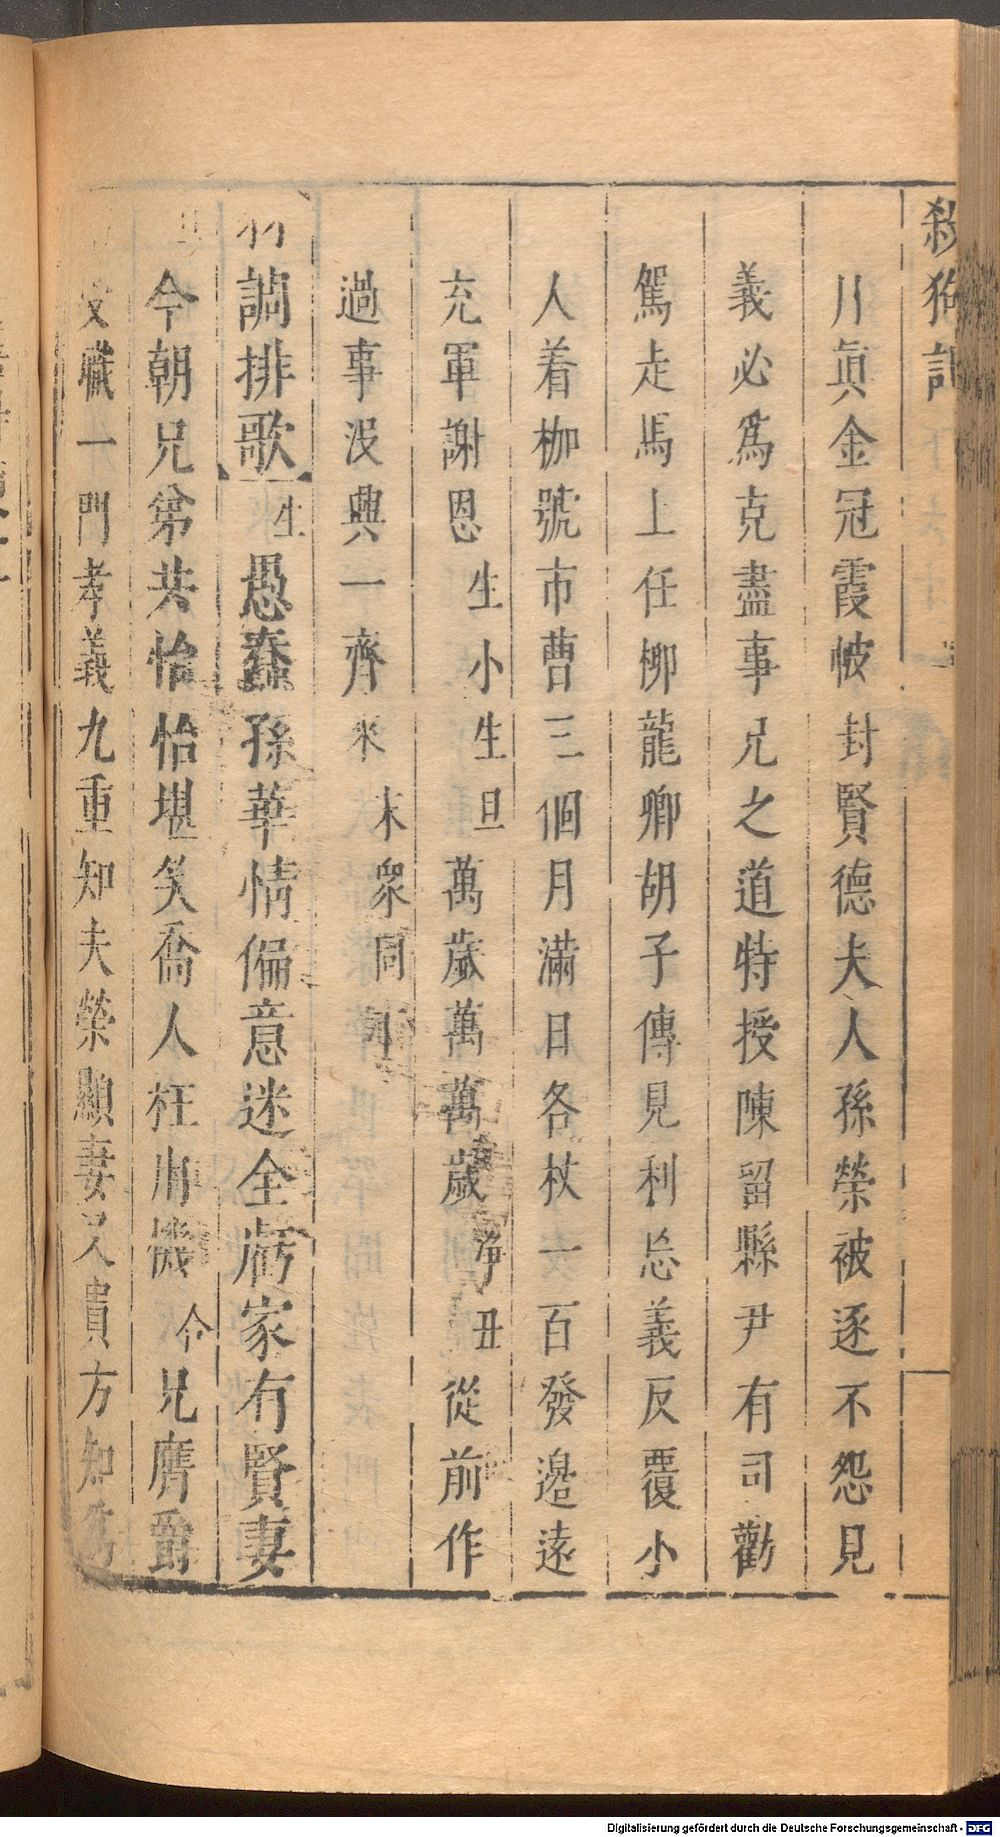 殺狗記
川真金冠霞帔封賢德夫人孫榮被逐不怨見
義必爲克盡事兄之道特授陳留縣尹有司勸
駕走馬上任柳龍卿胡子傳見利忘義反覆小
人着枷號市曹三個月滿日各杖一百發邉遠
充軍謝恩生小生旦萬歲萬萬歲淨丑從前作
過事没興一齊來末衆同
調排歌生愚蠢孫華情偏意迷全虧家有賢妻
今朝兄弟共怡怡堪笑喬人枉用機合兄膺爵
受職一門孝義九重知夫榮顯妻又貴方知爲
Digitalisierung gefördert durch die Deutsche Forschungsgemeinschaft - DFG